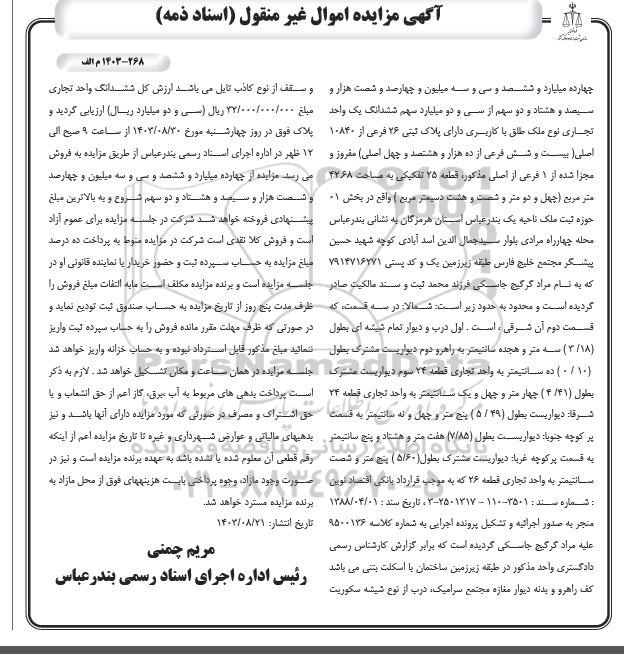 آگهی مزایده اموال غیر منقول (اسناد ذمه)
۱۴۰۳-۲۶۸ م الف
چهارده میلیارد و ششصد و سی و سه میلیون و چهارصد و شصت هزار و
سیصد و هشتاد و دو سهم از سی و دو میلیارد سهم ششدانگ یک واحد
تجاری نوع ملک طلق با کاربری دارای پلاک ثبتی ۲۶ فرعی از ۱۰۸۴۰
اصلی( بیست و شش فرعی از ده هزار و هشتصد و چهل اصلی) مفروز و
مجزا شده از ۱ فرعی از اصلی مذکور، قطعه ۲۵ تفکیکی به مساحت ۴۲.۶۸
متر مربع (چهل و دو متر و شصت و هشت دسیمتر مربع ) واقع در بخش ۰۱
حوزه ثبت ملک ناحیه یک بندرعباس استان هرمزگان به نشانی بندرعباس
محله چهارراه مرادی بلوار سیدجمال الدین اسد آبادی کوچه شهید حسین
پیشگر مجتمع خلیج فارس طبقه زیرزمین یک و کد پستی ۷۹۱۴۷۱۶۲۷۱
که به نام مراد گرگیج جاسکی فرزند محمد ثبت و سند مالکیت صادر
گردیده است و محدود به حدود زیر است: شمالا: در سه قسمت، که
قسمت دوم آن شرقی ، است . اول درب و دیوار تمام شیشه ای بطول
(۳/۱۸ ) سه متر و هجده سانتیمتر به راهرو دوم دیواریست مشترک بطول
( ۰/۱۰ ) ده سانتیمتر به واحد تجاری قطعه ۲۴ سوم دیواریست مشترک
بطول (۴/۴۱ ) چهار متر و چهل و یک سانتیمتر به واحد تجاری قطعه ۲۴
شرقا: دیواریست بطول (۵/۴۹ ) پنج متر و چهل و نه سانتیمتر به قسمت
پر کوچه جنوبا: دیواریست بطول (۷/۸۵) هفت متر و هشتاد و پنج سانتیمتر
به قسمت پرکوچه غربا: دیواریست مشترک بطول(۵/۶۰) پنج متر و شصت
سانتیمتر به واحد تجاری قطعه ۲۶ که به موجب قرارداد بانکی اقتصاد نوین
: شماره سند : ۳۵۰۱-۱۱۰ – ۲۵۰۱۳۱۷-۳ ، تاریخ سند : ۱۳۸۸/۰۴/۰۱
منجر به صدور اجرائیه و تشکیل پرونده اجرایی به شماره کلاسه ۹۵۰۰۱۳۶
علیه مراد گرگیج جاسکی گردیده است که برابر گزارش کارشناس رسمی
دادگستری واحد مذکور در طبقه زیرزمین ساختمان با اسکلت بتنی می باشد
کف راهرو و بدنه دیوار مغازه مجتمع سرامیک، درب از نوع شیشه سکوریت
و سقف از نوع کاذب تایل می باشد ارزش کل ششدانگ واحد تجاری
مبلغ ۳۲/۰۰۰/۰۰۰/۰۰۰ ریال (سی و دو میلیارد ریال) ارزیابی گردید و
پلاک فوق در روز چهارشنبه مورخ ۱۴۰۳/۰۸/۳۰ از ساعت ۹ صبح الی
۱۲ ظهر در اداره اجرای اسناد رسمی بندرعباس از طریق مزایده به فروش
می رسد. مزایده از چهارده میلیارد و ششصد و سی و سه میلیون و چهارصد
و شصت هزار و سیصد و هشتاد و دو سهم شروع و به بالاترین مبلغ
پیشنهادی فروخته خواهد شد شرکت در جلسه مزایده برای عموم آزاد
است و فروش کلا نقدی است شرکت در مزایده منوط به پرداخت ده درصد
مبلغ مزایده به حساب سپرده ثبت و حضور خریدار یا نماینده قانونی او در
جلسه مزایده است و برنده مزایده مکلف است مابه التفات مبلغ فروش را
ظرف مدت پنج روز از تاریخ مزایده به حساب صندوق ثبت تودیع نماید و
در صورتی که ظرف مهلت مقرر مانده فروش را به حساب سپرده ثبت واریز
ننمائید مبلغ مذکور قابل استرداد نبوده و به حساب خزانه واریز خواهد شد
جلسه مزایده در همان ساعت و مکان تشکیل خواهد شد. لازم به ذکر
است پرداخت بدهی های مربوط به آب ،برق، گاز اعم از حق انشعاب و یا
حق اشتراک و مصرف در صورتی که مورد مزایده دارای آنها باشد و نیز
بدهیهای مالیاتی و عوارض شهرداری و غیره تا تاریخ مزایده اعم از اینکه
رقم قطعی آن معلوم شده یا نشده باشد به عهده برنده مزایده است و نیز در
صورت وجود مازاد، وجوه پرداختی بابت هزینههای فوق از محل مازاد به
برنده مزایده مسترد خواهد شد.
تاریخ انتشار: ۱۴۰۳/۰۸/۲۱
مریم چمنی
رئیس اداره اجرای اسناد رسمی بندرعباس
ParsNamadData
پایگاه اطلاع رسانی مناقصه و مزایده
۰۲۱-۸۸۳۴۹۶۷۰-۵